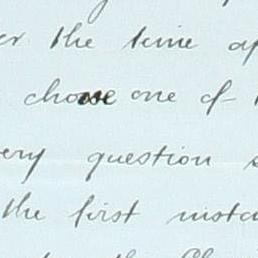 er the time of
choose one of
ery question s
the first insta
the